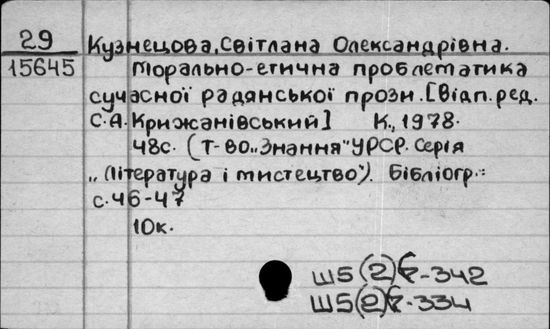 29 Кузнецова, Світлана Олександрівна.
15645 Морально-етична проблематика
сучасної радянської прози. [Відп. ред.
С.А. Крижанівський] К., 1978.
48с. (Т-во „Знання" УРСР. Серія
„Література і мистецтво"). Бібліогр.:
с. 46-47
10к.
Ш5(2)
-342
Ш5(2)
-334